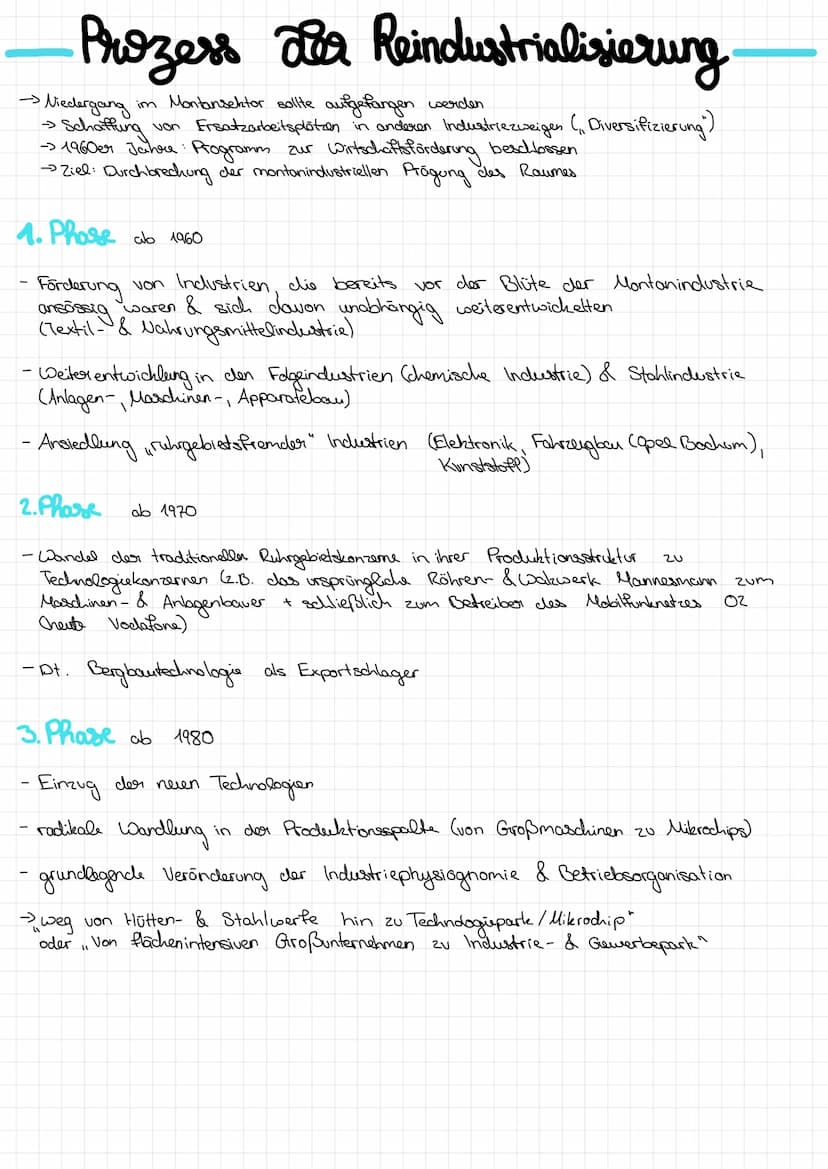 Prozess der Reindustrialisierung
→ Niedergang im Montansektor sollte aufgefangen werden
→ Schaffung von Ersatzarbeitsplätzen in anderen Industriezweigen („Diversifizierung")
→ 1960er Jahre: Programm zur Wirtschaftsförderung beschlossen
→ Ziel: Durchbrechung der montanindustriellen Prägung des Raumes
1. Phase ab 1960
- Förderung von Industrien, die bereits vor der Blüte der Montanindustrie
ansässig waren & sich davon unabhängig weiterentwickelten
(Textil- & Nahrungsmittelindustrie)
- Weiterentwicklung in den Folgeindustrien (chemische Industrie) & Stahlindustrie
(Anlagen-, Maschinen-, Apparatebau)
- Ansiedlung „ruhrgebietsfremder" Industrien (Elektronik, Fahrzeugbau (Opel Bochum),
Kunststoff)
2. Phase ab 1970
- Wandel der traditionellen Ruhrgebietskonzerne in ihrer Produktionsstruktur zu
Technologiekonzernen (z.B. das ursprüngliche Röhren- & Walzwerk Mannesmann zum
Maschinen- & Anlagenbauer + schließlich zum Betreiber des Mobilfunknetzes O2
(heute Vodafone)
- Dt. Bergbautechnologie als Exportschlager
3. Phase ab 1980
- Einzug der neuen Technologien
- radikale Wandlung in der Produktionsspalte (von Großmaschinen zu Mikrochips)
- grundlegende Veränderung der Industriephysiognomie & Betriebsorganisation
→ „weg von Hütten- & Stahlwerke hin zu Technologiepark/Mikrochip"
oder „Von flächenintensiven Großunternehmen zu Industrie- & Gewerbepark"